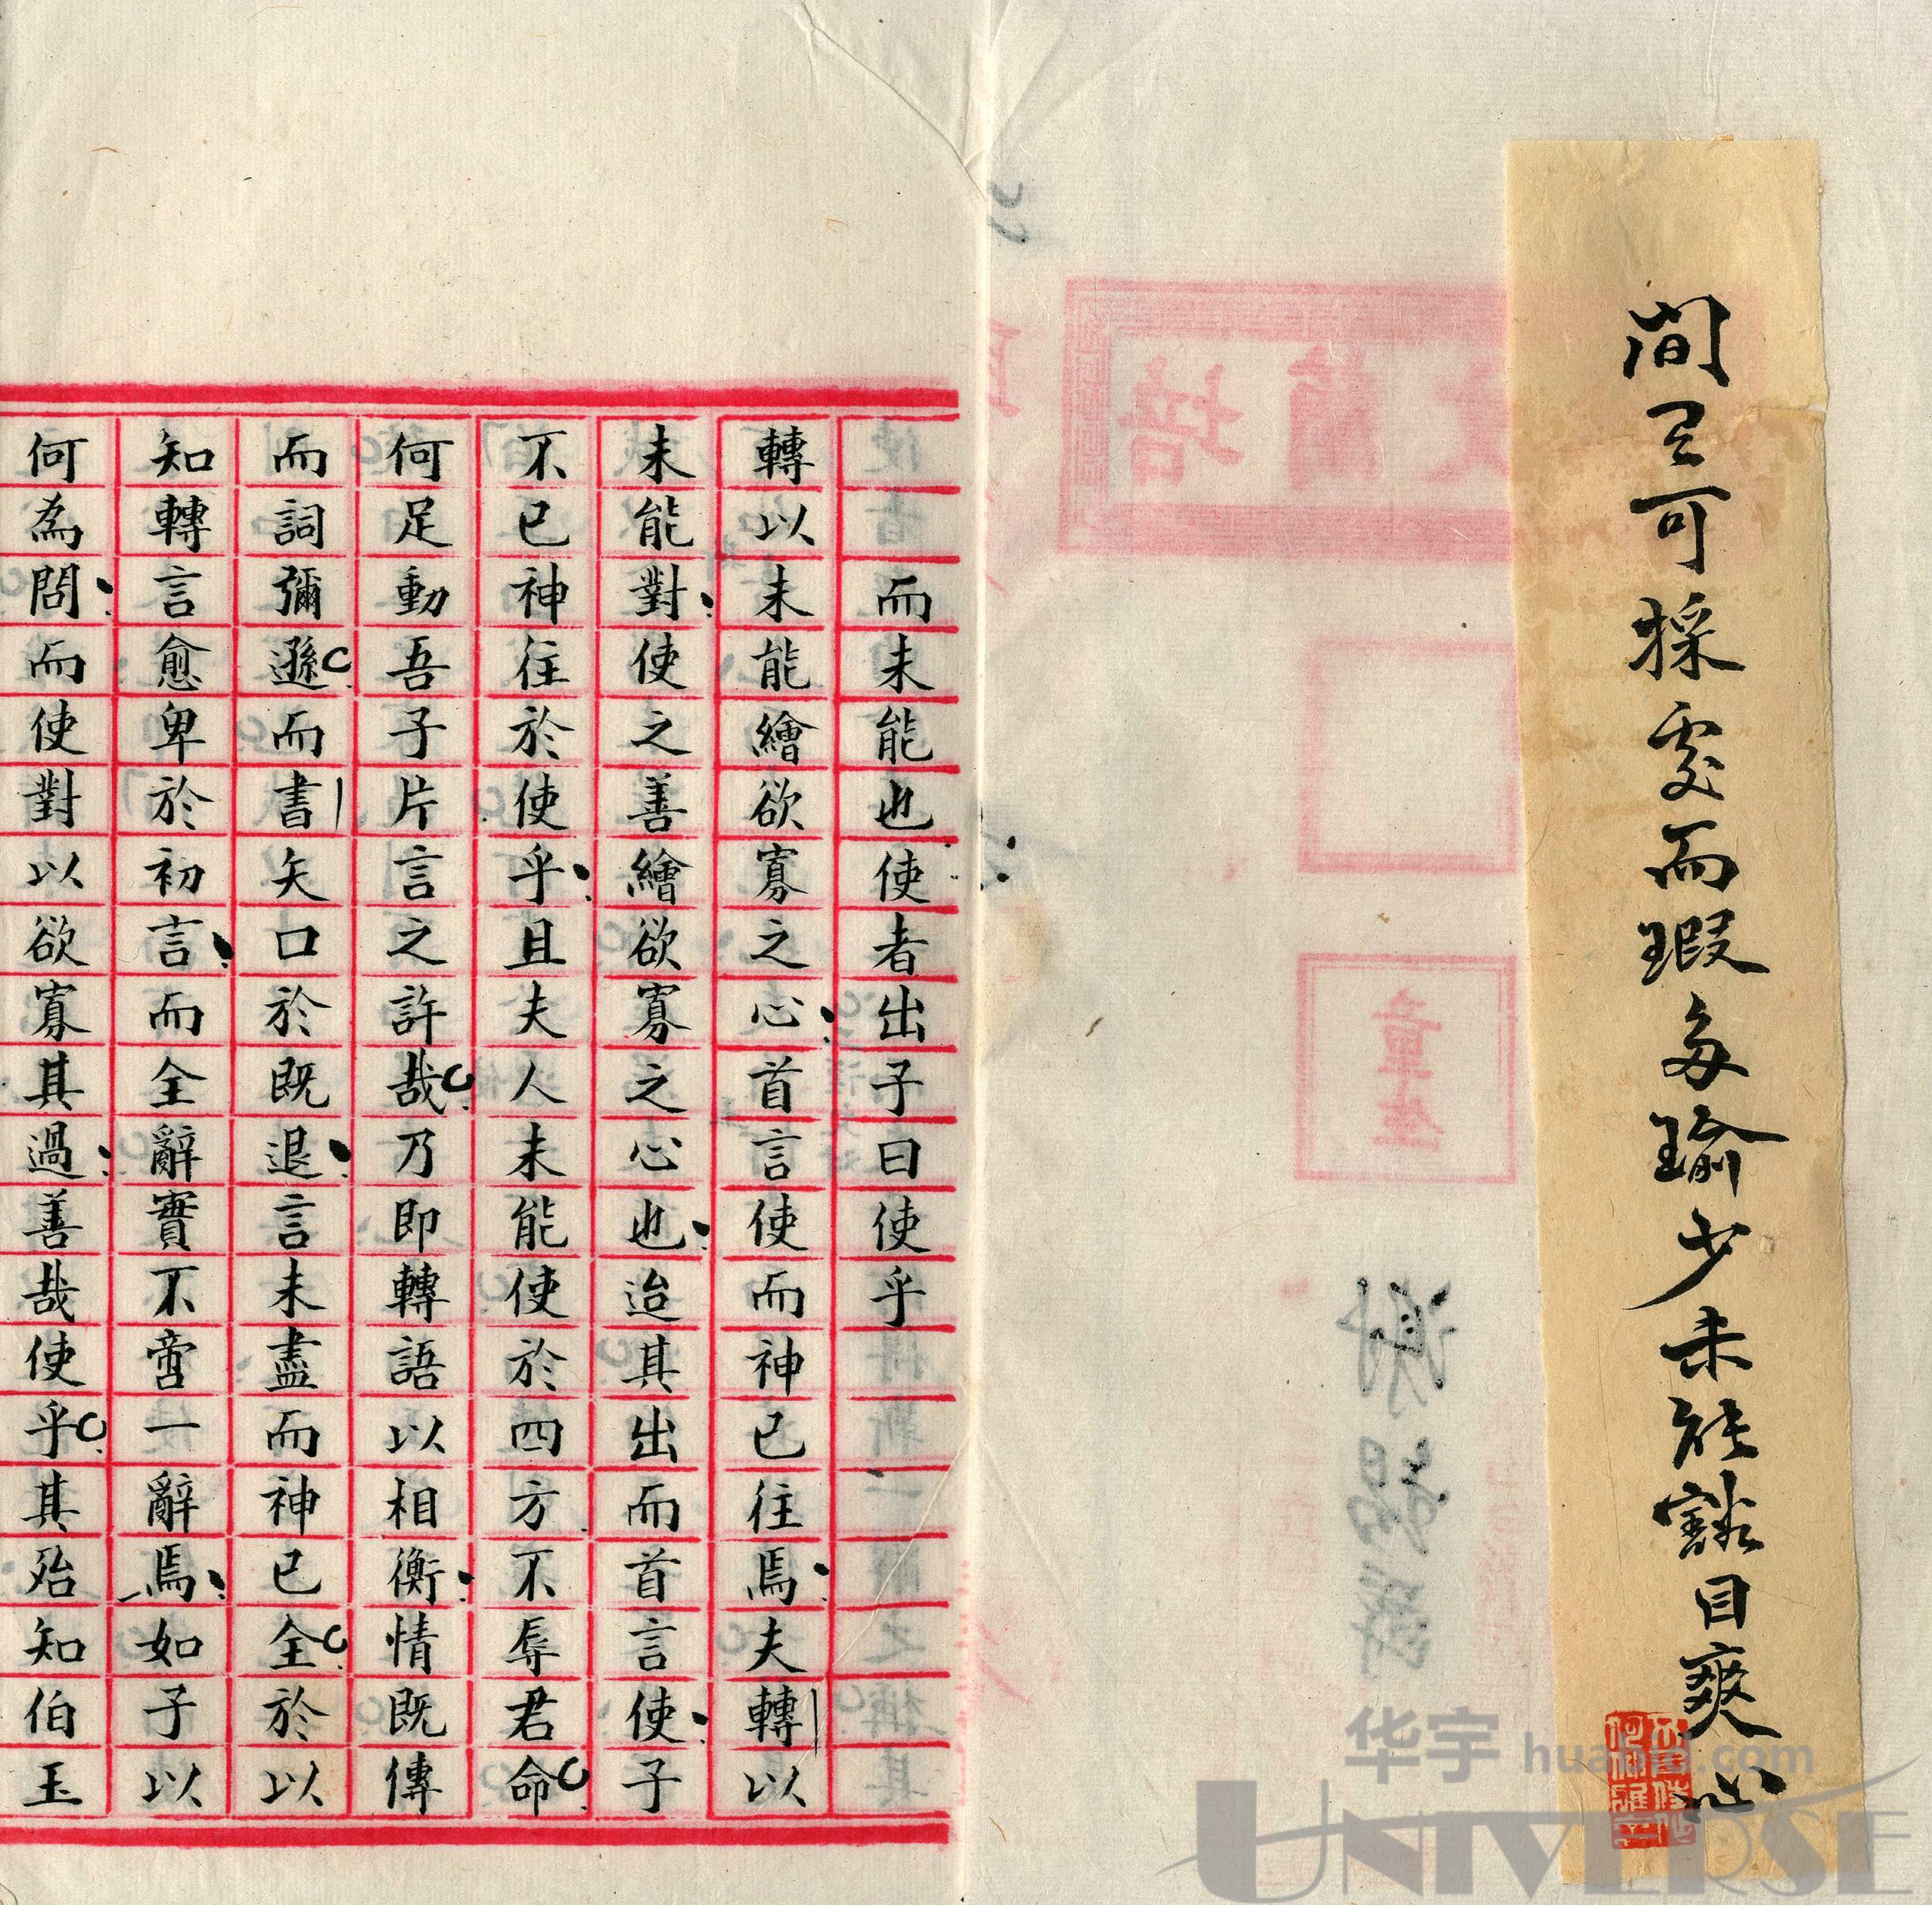 間有可採處而瑕多瑜少未能豁目爽心
而未能也使者出子曰使乎
轉以未能繪欲寡之心首言使而神已往焉夫轉以
未能對使之善繪欲寡之心也迨其出而首言使子
不已神往於使乎且夫人未能使於四方不辱君命
何足動吾子片言之許哉乃即轉語以相衡情既傳
而詞彌遜而書矢口於既退言未盡而神已全於以
知轉言愈卑於初言而全辭實不啻一辭焉如子以
何為問而使對以欲寡其過善哉使乎其殆知伯玉
培
童生
謝
华宇 huabid.com
UNIVERSE